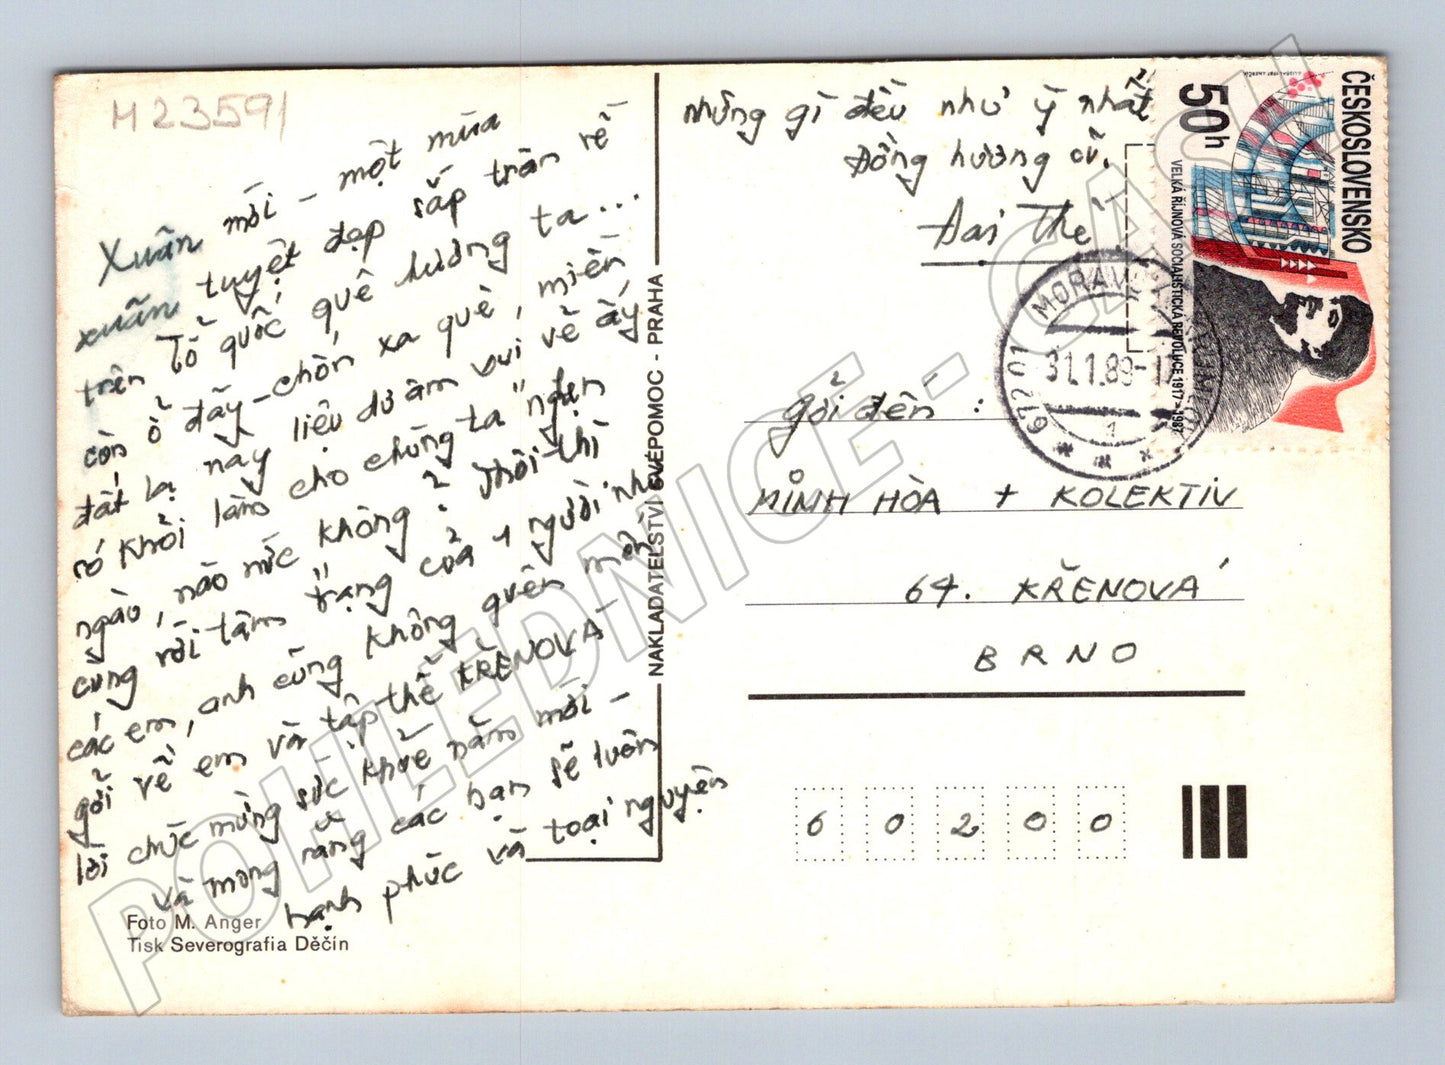 M23591
Xuân mới - một mùa
xuân tuyệt đẹp sắp tràn về
trên Tổ quốc quê hương ta...
còn ở đây - chốn xa quê, miền
đất lạ này liệu dư âm vui vẻ ấy
có khỏi làm cho chúng ta "nghẹn
ngào, náo nức không? Thôi thì
cùng với tâm trạng của 1 người như
các em, anh cũng không quên mến
gởi về em và tập thể KŘENOVÁ
lời chúc mừng sức khỏe năm mới -
và mong rằng các bạn sẽ luôn
hạnh phúc và toại nguyện
những gì đều như ý nhất
Đồng hương cũ.
Đai Thế
gởi đến :
MINH HÒA + KOLEKTIV
64. KŘENOVÁ
BRNO
60200
NAKLADATELSTVÍ SVÉPOMOC - PRAHA
Foto M. Anger
Tisk Severografia Děčín
ČESKOSLOVENSKO
50h
VELKÁ ŘÍJNOVÁ SOCIALISTICKÁ REVOLUCE 1917-1987
619 201
31.1.89-1
1
POHLEDNICE - CASH